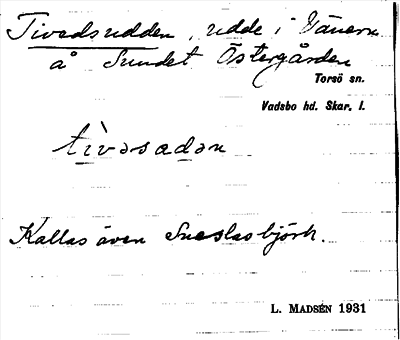 Tivedsudden, udde i Vänern
å Sundet Östergården
Torsö sn.
Vadsbo hd. Skar. l.
tìvəsadən
Kallas även Sneslasbjörk.
L. MADSÉN 1931